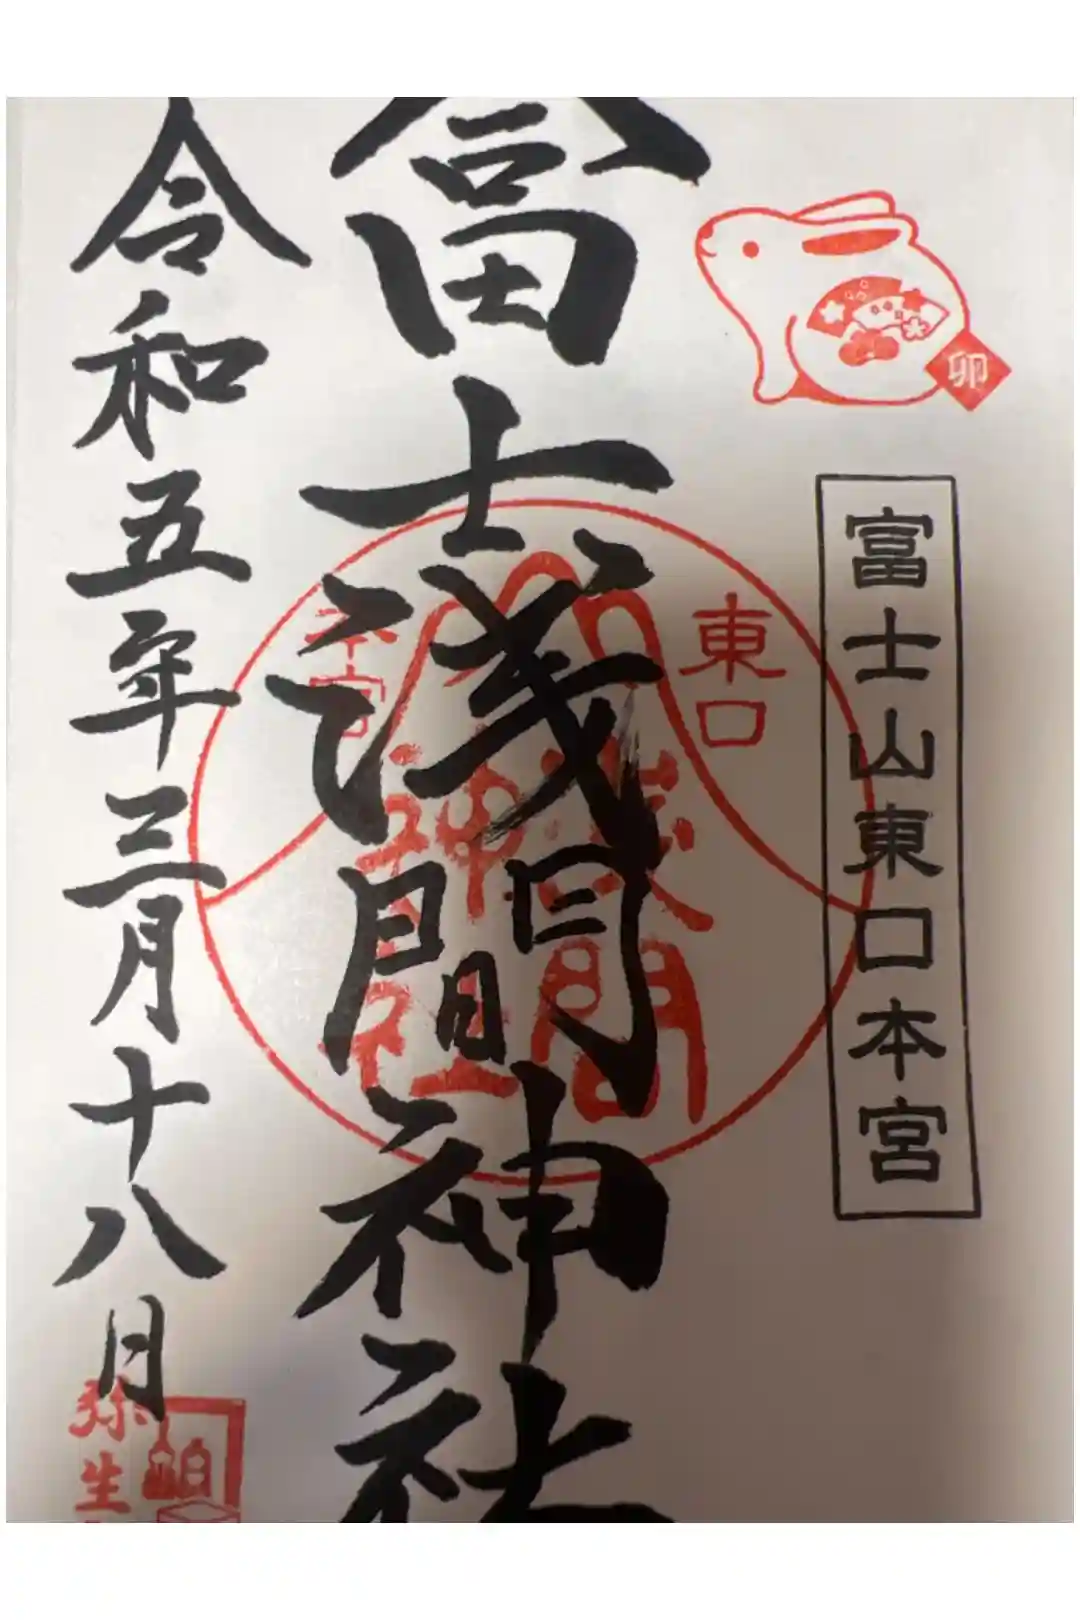 卯
富士山東口本宮
冨士浅間神社
東口
本宮
浅間
神社
令和五年三月十八日
弥生